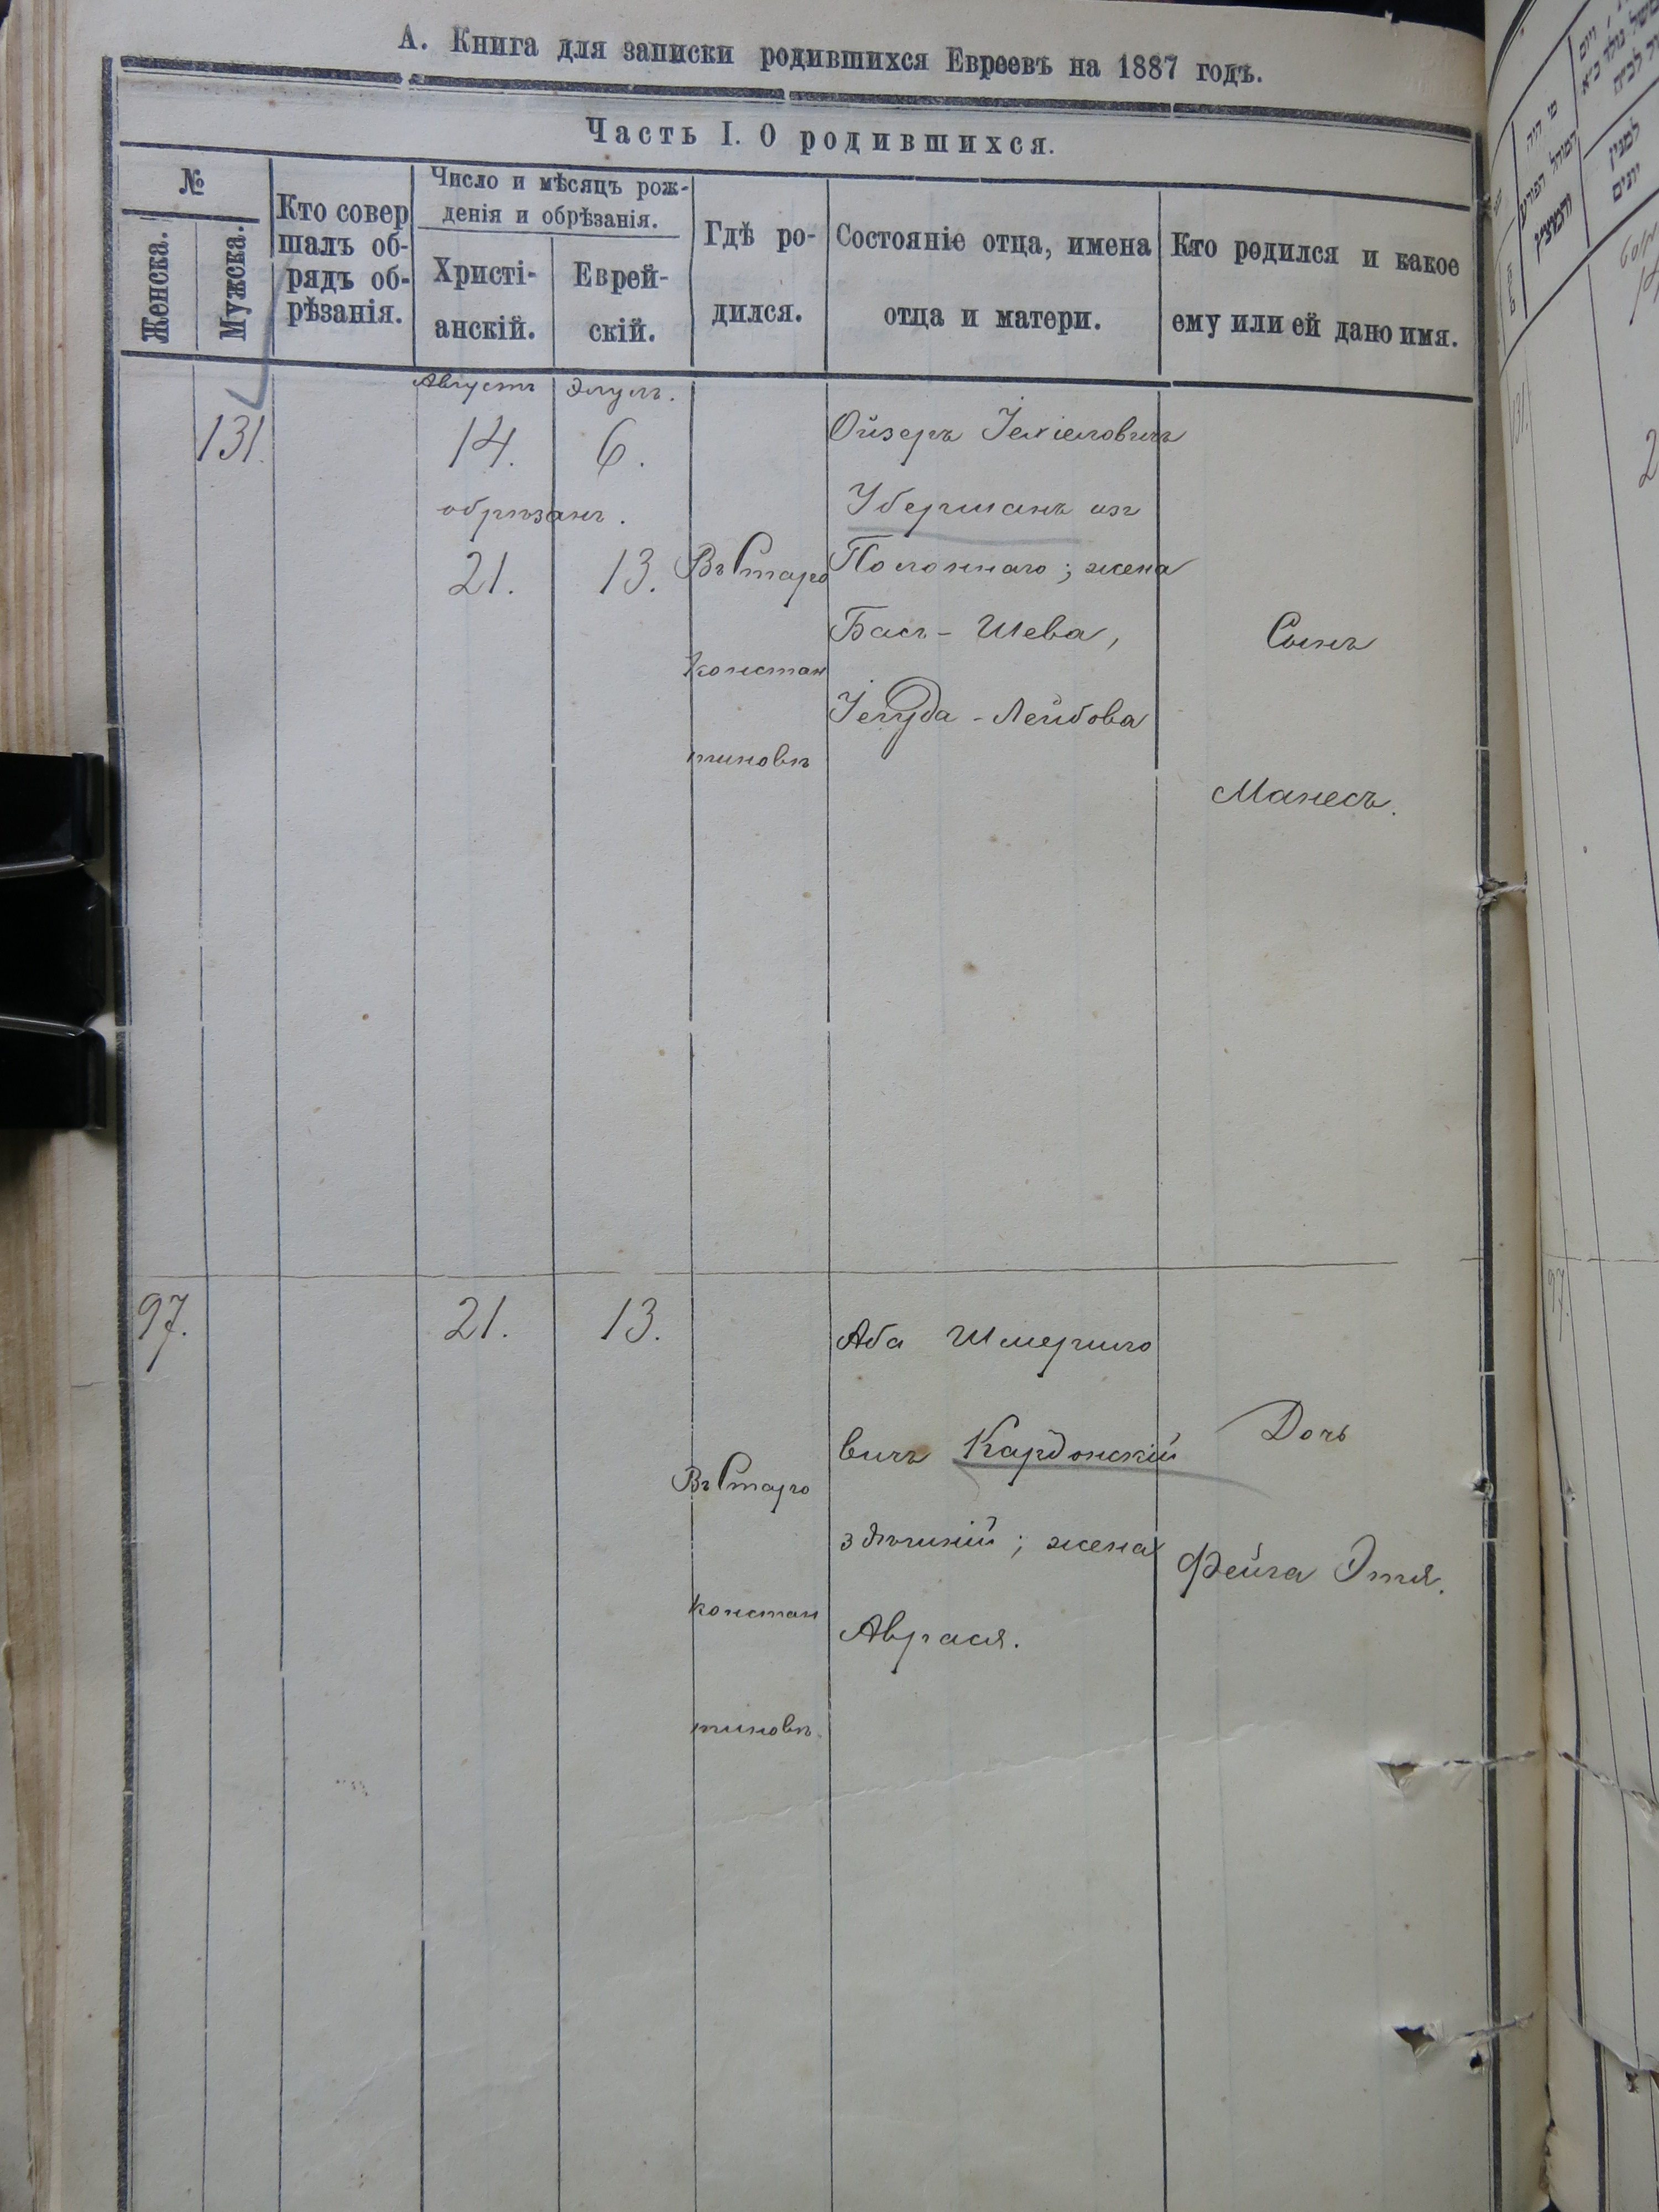 А. Книга для записки родившихся Евреевъ на 1887 годъ.
Часть I. О родившихся.
№
Женска.
Мужска.
Кто совер
шалъ об-
рядъ об-
рѣзанія.
Число и мѣсяцъ рож-
денія и обрѣзанія.
Христі-
анскій.
Еврей-
скій.
Гдѣ ро-
дился.
Состояніе отца, имена
отца и матери.
Кто родился и какое
ему или ей дано имя.
Августъ Элулъ.
131. 14. 6.
обрѣзанъ.
21. 13.
Въ Старо
констан
тиновѣ
Ойзеръ Іехіеловичъ
Уберманъ изъ
Полоннаго; жена
Бася-Шева,
Іегуда-Лейбова
Сынъ
Манесъ.
97. 21. 13.
Въ Старо
констан
тиновѣ.
Аба Шмерило
вичъ Кардонскій
здѣшній; жена
Аврася.
Дочь
Фейга Этя.